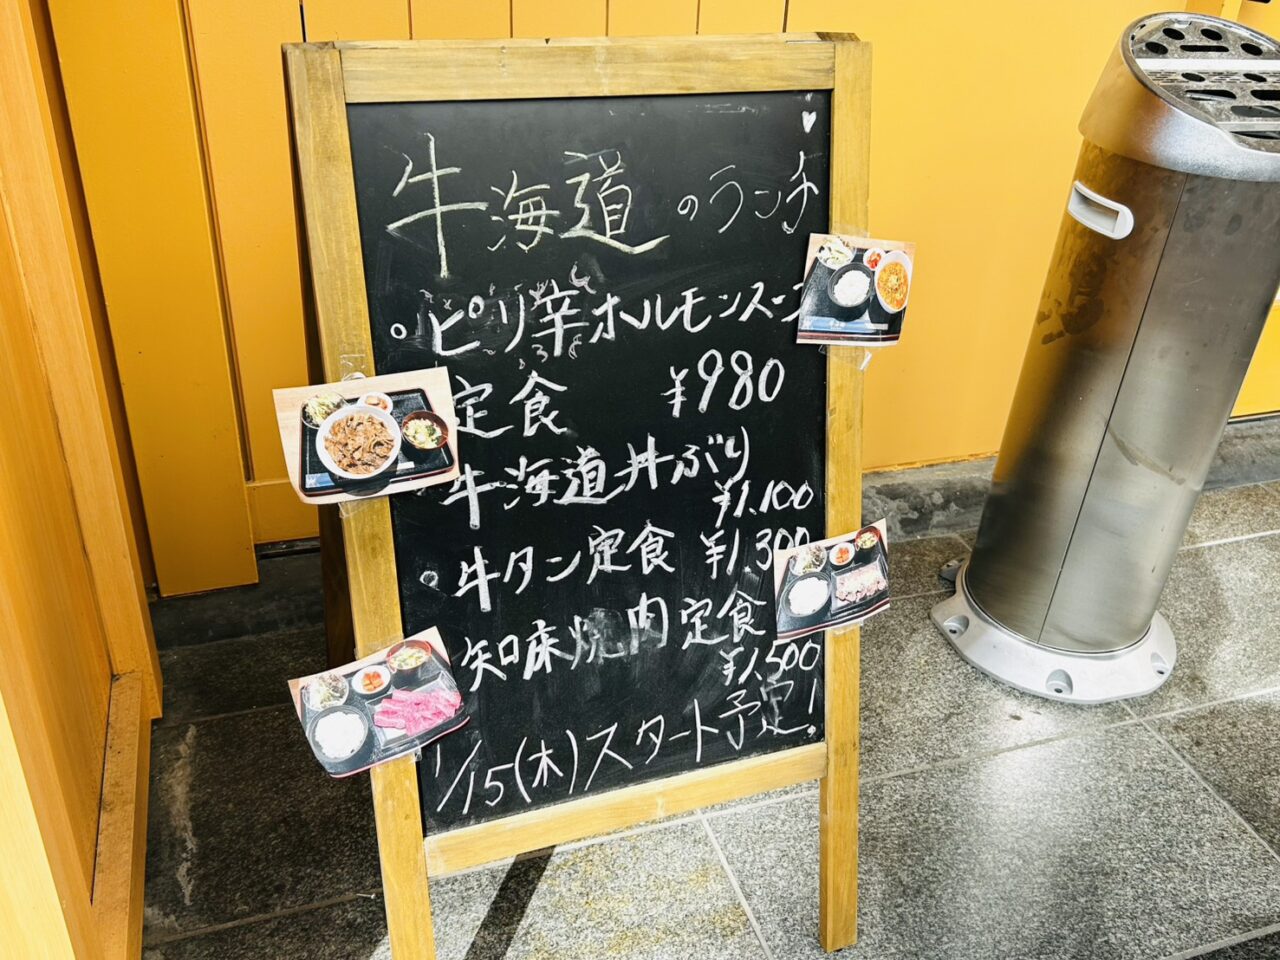 牛海道のランチ
ピリ辛ホルモンスープ
定食 ¥980
牛海道丼ぶり
¥1.100
牛タン定食 ¥1.300
知床焼肉定食
¥1.500
1/15(木)スタート予定!